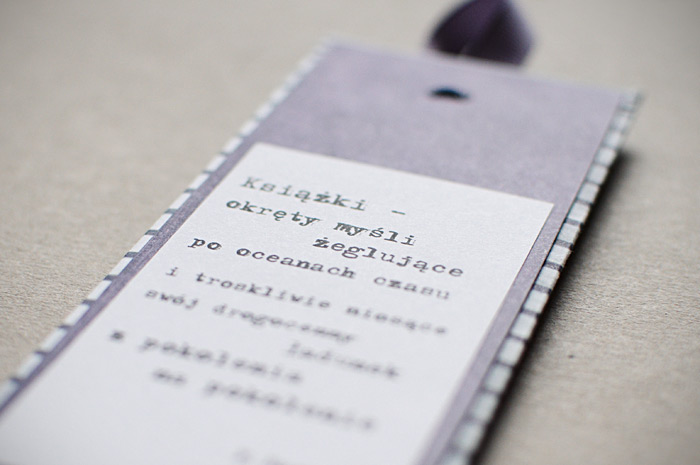 Książki -
okręty myśli
żeglujące
po oceanach czasu
i troskliwie niosące
swój drogocenny
ładunek
z pokolenia
na pokolenie